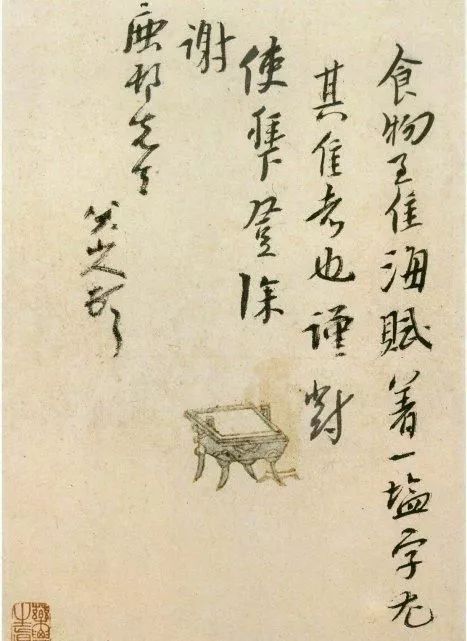 食物至佳海賦著一塩字尤
其佳者也謹對
使拜登除
謝
鹿邨先生
八大山人